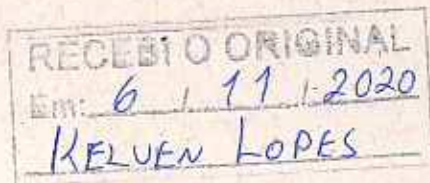 RECEBI O ORIGINAL
Em: 6 / 11 / 2020
KELVEN LOPES